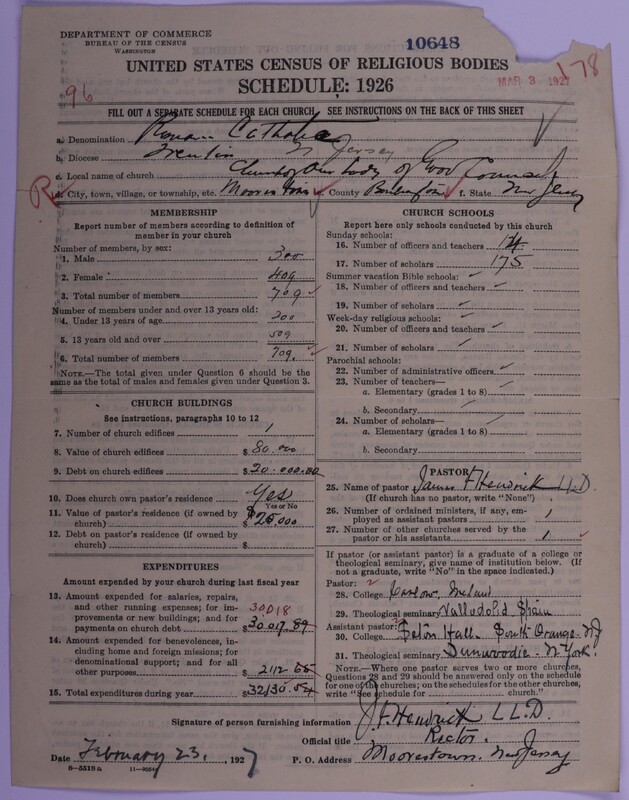 DEPARTMENT OF COMMERCE
BUREAU OF THE CENSUS
WASHINGTON
10648
UNITED STATES CENSUS OF RELIGIOUS BODIES
SCHEDULE: 1926
MAR 3 1927
178
96
FILL OUT A SEPARATE SCHEDULE FOR EACH CHURCH. SEE INSTRUCTIONS ON THE BACK OF THIS SHEET
a. Denomination Roman Catholic
b. Diocese Trenton N Jersey
c. Local name of church Church of Our Lady of Good Counsel
R d. City, town, village, or township, etc. Moorestown e. County Burlington f. State New Jersey
MEMBERSHIP
Report number of members according to definition of
member in your church
Number of members, by sex:
1. Male 300
2. Female 409
3. Total number of members 709
Number of members under and over 13 years old:
4. Under 13 years of age 200
5. 13 years old and over 509
6. Total number of members 709
NOTE.—The total given under Question 6 should be the
same as the total of males and females given under Question 3.
CHURCH BUILDINGS
See instructions, paragraphs 10 to 12
7. Number of church edifices 1
8. Value of church edifices $ 80.000
9. Debt on church edifices $ 20.000.00
10. Does church own pastor's residence Yes
Yes or No
11. Value of pastor's residence (if owned by
church) $ 25,000
12. Debt on pastor's residence (if owned by
church) $
EXPENDITURES
Amount expended by your church during last fiscal year
13. Amount expended for salaries, repairs,
and other running expenses; for im-
provements or new buildings; and for
payments on church debt $ 30017.89
30018
14. Amount expended for benevolences, in-
cluding home and foreign missions; for
denominational support; and for all
other purposes $ 2112 65
15. Total expenditures during year $ 32130.54
CHURCH SCHOOLS
Report here only schools conducted by this church
Sunday schools:
16. Number of officers and teachers 14
17. Number of scholars 175
Summer vacation Bible schools:
18. Number of officers and teachers
19. Number of scholars
Week-day religious schools:
20. Number of officers and teachers
21. Number of scholars
Parochial schools:
22. Number of administrative officers
23. Number of teachers—
a. Elementary (grades 1 to 8)
b. Secondary
24. Number of scholars—
a. Elementary (grades 1 to 8)
b. Secondary
PASTOR
25. Name of pastor James F Hendrick LL.D.
(If church has no pastor, write "None")
26. Number of ordained ministers, if any, em-
ployed as assistant pastors 1
27. Number of other churches served by the
pastor or his assistants 1
If pastor (or assistant pastor) is a graduate of a college or
theological seminary, give name of institution below. (If
not a graduate, write "No" in the space indicated.)
Pastor: 2
28. College Carlow, Ireland
29. Theological seminary Valladolid Spain
Assistant pastor:
30. College Seton Hall. South Orange. NJ
31. Theological seminary Dunwoodie. N York.
NOTE.—Where one pastor serves two or more churches,
Questions 28 and 29 should be answered only on the schedule
for one of the churches; on the schedules for the other churches,
write "See schedule for church."
Signature of person furnishing information J. F. Hendrick LL.D.
Official title Rector.
Date February 23, 1927
P. O. Address Moorestown. New Jersey
8—5518a 11—9554